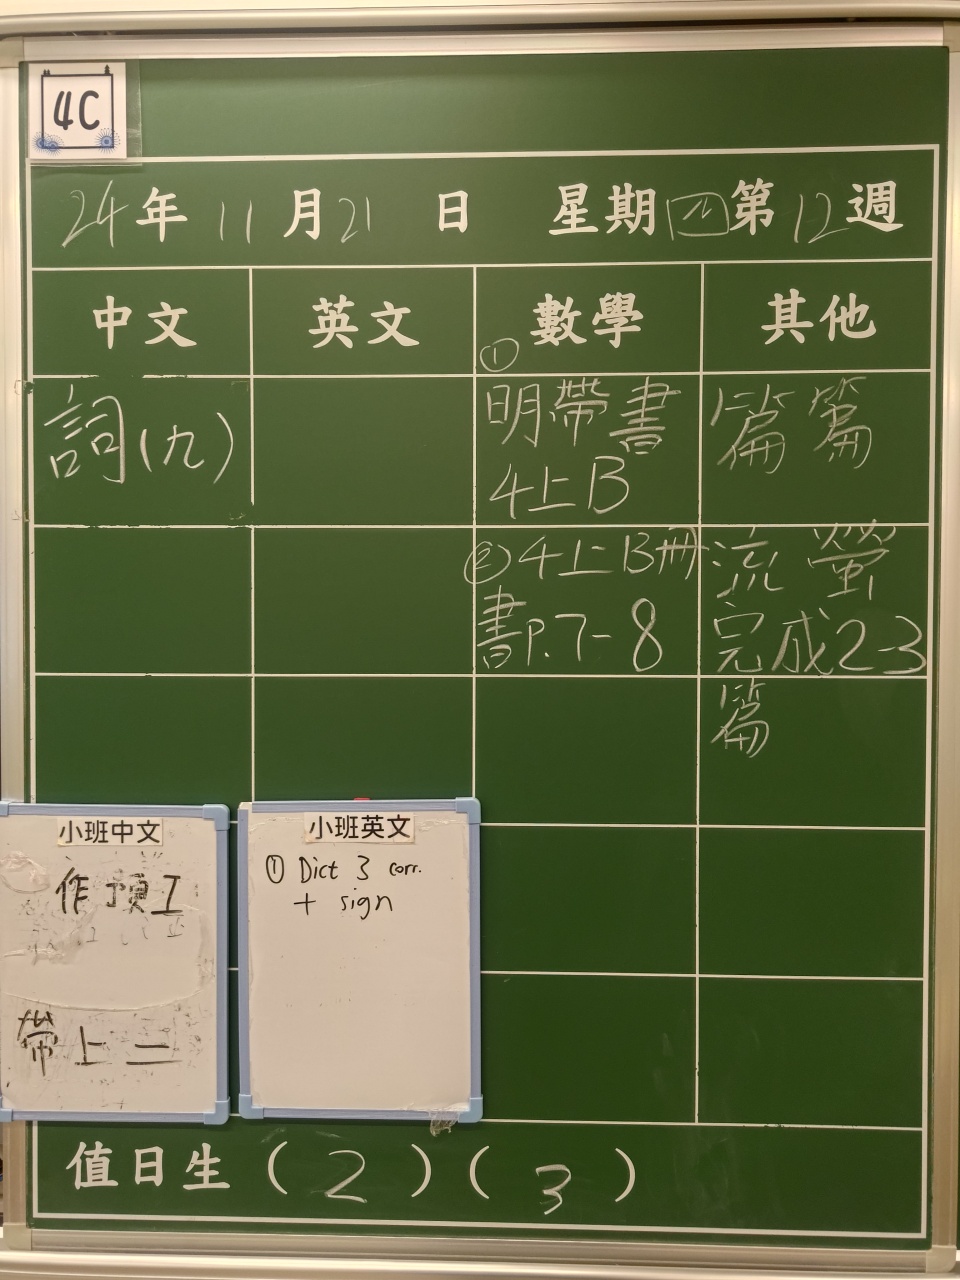 4C
24年11月21日 星期四第12週
中文
英文
數學
其他
詞(九)
①
明帶書
4上B
②4上B冊
書P.7-8
篇篇
流螢
完成2-3
篇
小班中文
作預工
帶上二
小班英文
① Dict 3 corr.
+ sign
值日生(2)(3)